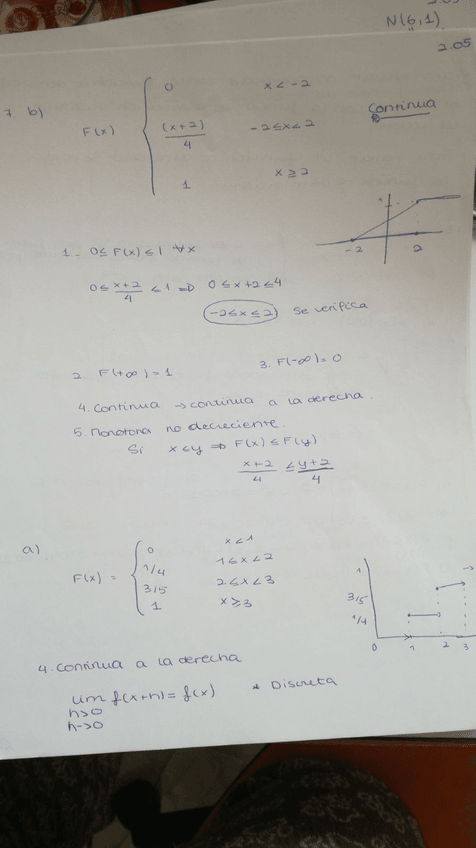 N(6,1)
2.05
7. b)
F(x) { 0 x < -2
(x+2)/4 -2≤x<2
1 x ≥ 2
Continua
1
-2 2
1.- 0≤ F(x) ≤ 1 ∀x
0≤ x+2/4 ≤ 1 ⇒ 0≤x+2≤4
-2≤x≤2 se verifica
2. F(+∞) = 1
3. F(-∞) = 0
4. Continua → continua a la derecha.
5. Monotona no decreciente.
Si x<y ⇒ F(x) ≤ F(y)
x+2/4 ≤ y+2/4
a)
F(x) = { 0 x<1
1/4 1≤x<2
3/5 2≤x<3
1 x≥3
1
3/5
1/4
0 1 2 3
4. Continua a la derecha
lim f(x+h) = f(x) * Discreta
h>0
h→0